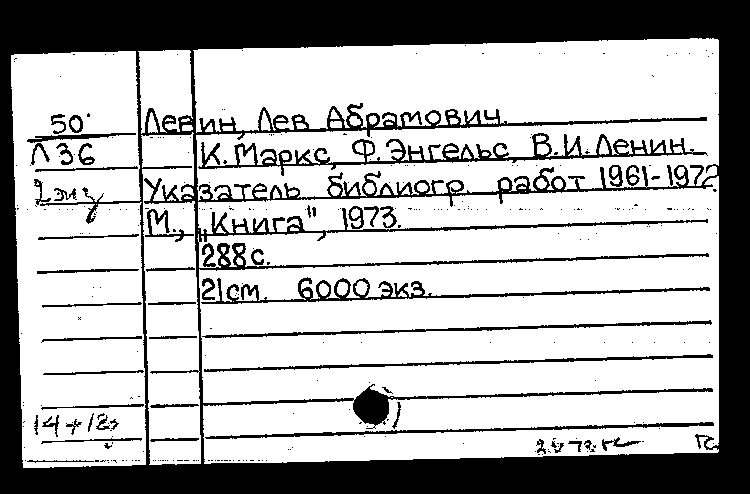 50 Левин, Лев Абрамович.
Л36 К. Маркс, Ф. Энгельс, В.И. Ленин.
2 экз Указатель библиогр. работ 1961-1972
М., „Книга", 1973.
288с.
21см. 6000 экз.
14+12